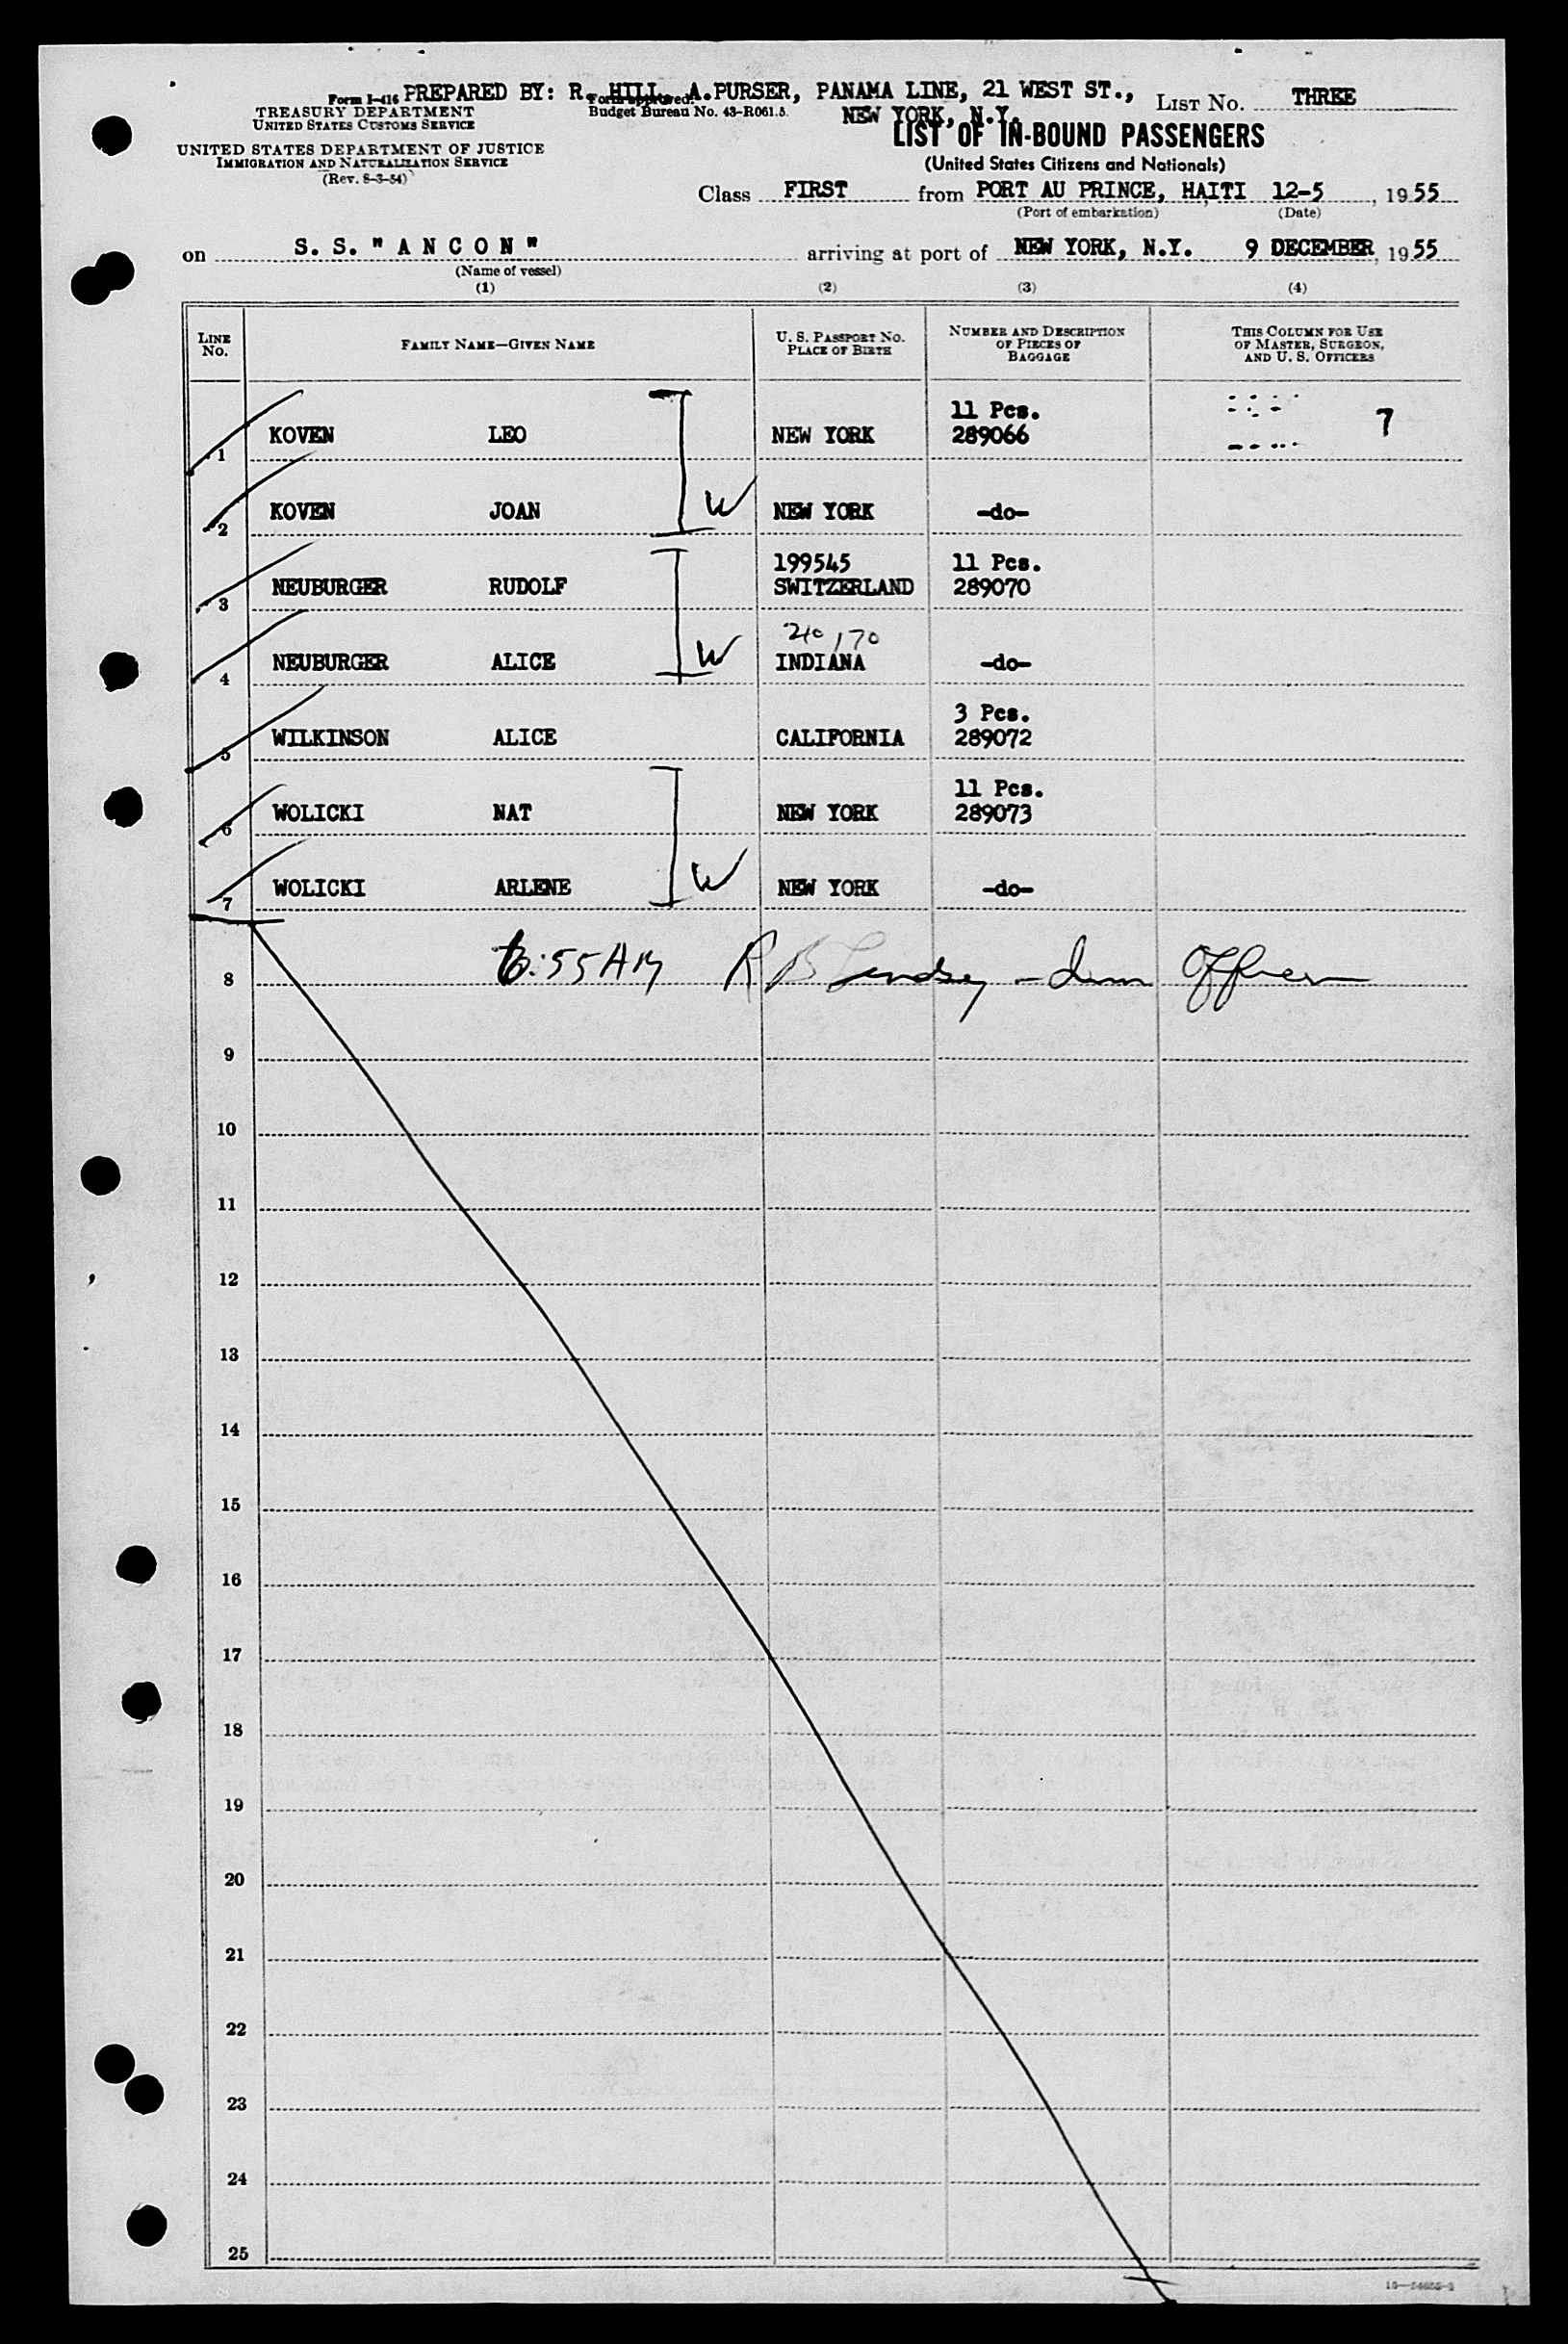 PREPARED BY: R. HILL, A.PURSER, PANAMA LINE, 21 WEST ST.,
NEW YORK, N.Y.
Form I-416
TREASURY DEPARTMENT
UNITED STATES CUSTOMS SERVICE
UNITED STATES DEPARTMENT OF JUSTICE
IMMIGRATION AND NATURALIZATION SERVICE
(Rev. 8-3-54)
Form approved.
Budget Bureau No. 43-R061.5
LIST No. THREE
LIST OF IN-BOUND PASSENGERS
(United States Citizens and Nationals)
Class FIRST from PORT AU PRINCE, HAITI 12-5, 1955
(Port of embarkation) (Date)
on S. S. " A N C O N " arriving at port of NEW YORK, N.Y. 9 DECEMBER, 1955
(Name of vessel)
(1) (2) (3) (4)
LINE No.
FAMILY NAME—GIVEN NAME
U. S. PASSPORT NO.
PLACE OF BIRTH
NUMBER AND DESCRIPTION
OF PIECES OF
BAGGAGE
THIS COLUMN FOR USE
OF MASTER, SURGEON,
AND U. S. OFFICERS
11 Pcs.
1 KOVEN LEO NEW YORK 289066 7
2 KOVEN JOAN W NEW YORK -do-
199545 11 Pcs.
3 NEUBURGER RUDOLF SWITZERLAND 289070
170
4 NEUBURGER ALICE W INDIANA -do-
3 Pcs.
5 WILKINSON ALICE CALIFORNIA 289072
11 Pcs.
6 WOLICKI NAT NEW YORK 289073
7 WOLICKI ARLENE W NEW YORK -do-
8 6:55 AM R B Lindsey - Imm Officer
9
10
11
12
13
14
15
16
17
18
19
20
21
22
23
24
25